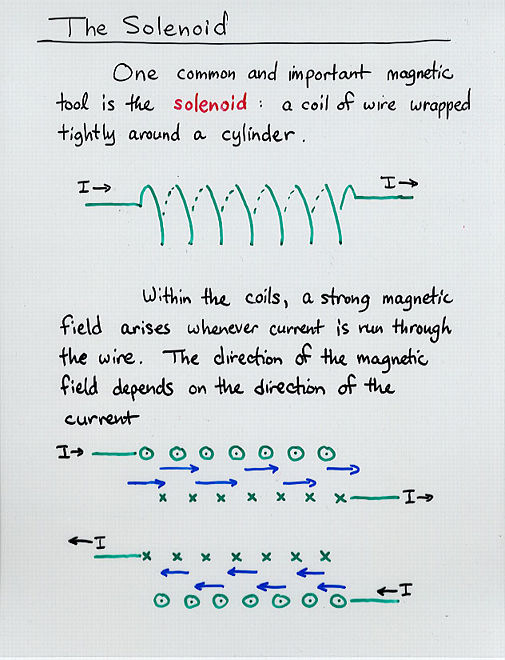 The Solenoid
One common and important magnetic
tool is the solenoid : a coil of wire wrapped
tightly around a cylinder.
I→ I→
Within the coils, a strong magnetic
field arises whenever current is run through
the wire. The direction of the magnetic
field depends on the direction of the
current
I→
x x x x x x x I→
←I
x x x x x x x
←I